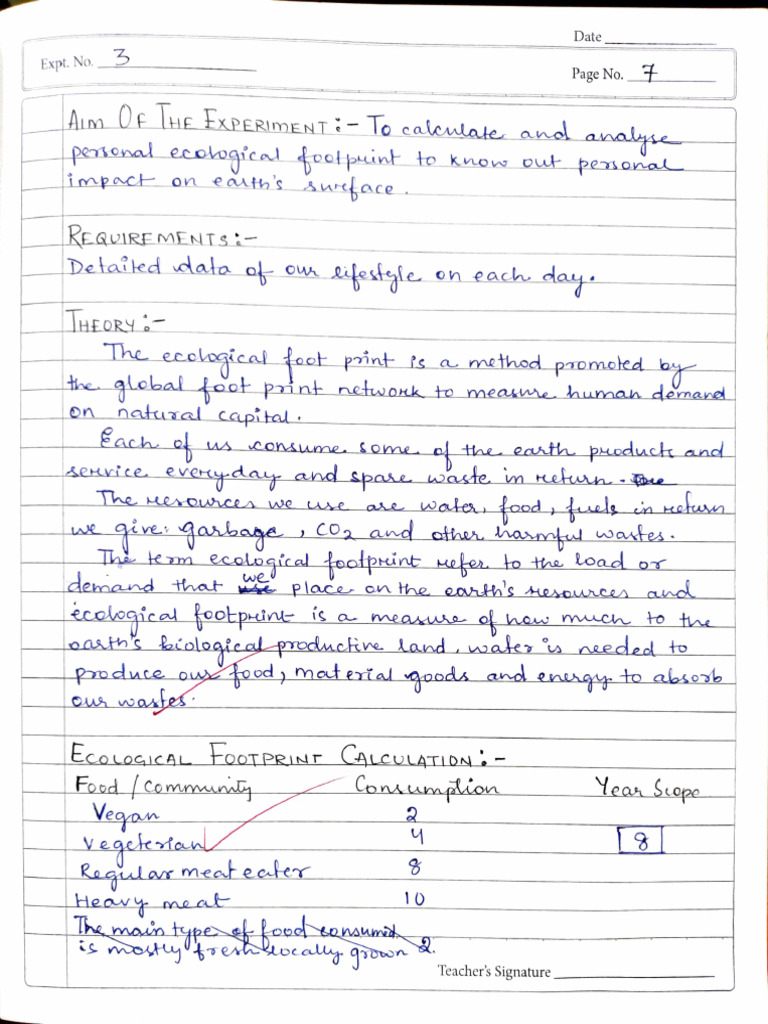 Date
Expt. No. 3
Page No. 7
AIM OF THE EXPERIMENT:- To calculate and analyse
personal ecological footprint to know out personal
impact on earth's surface.
REQUIREMENTS:-
Detailed data of our lifestyle on each day.
THEORY:-
The ecological foot print is a method promoted by
the global foot print network to measure human demand
on natural capital.
Each of us consume some of the earth products and
service everyday and spare waste in return.
The resources we use are water, food, fuels in return
we give: garbage, CO2 and other harmful wastes.
The term ecological footprint refer to the load or
demand that we place on the earth's resources and
ecological footprint is a measure of how much to the
earth's biological productive land, water is needed to
produce our food, material goods and energy to absorb
our wastes.
ECOLOGICAL FOOTPRINT CALCULATION:-
Food / Community Consumption Year Scope
Vegan 2
Vegeterian 4 8
Regular meat eater 8
Heavy meat 10
The main type of food consumed
is mostly fresh locally grown 2.
Teacher's Signature